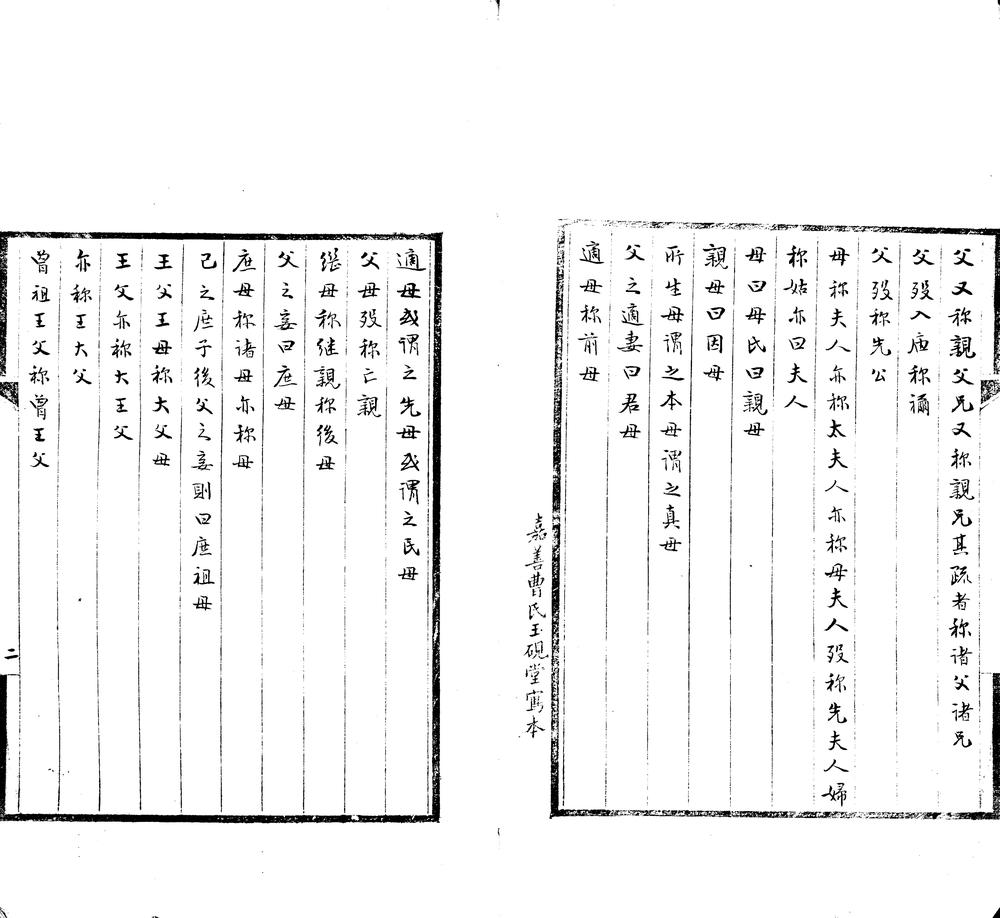 父又称親父兄又称親兄其疏者称诸父诸兄
父殁入庙称禰
父殁称先公
母称夫人亦称太夫人亦称母夫人殁称先夫人婦
称姑亦曰夫人
母曰母氏曰親母
親母曰因母
所生母谓之本母谓之真母
父之適妻曰君母
適母称前母
嘉善曹氏玉硯堂寫本
適母或谓之先母或谓之民母
父母殁称亡親
继母称继親称後母
父之妾曰庶母
庶母称诸母亦称母
己之庶子後父之妾則曰庶祖母
王父王母称大父母
王父亦称大王父
亦称王大父
曾祖王父称曾王父
二